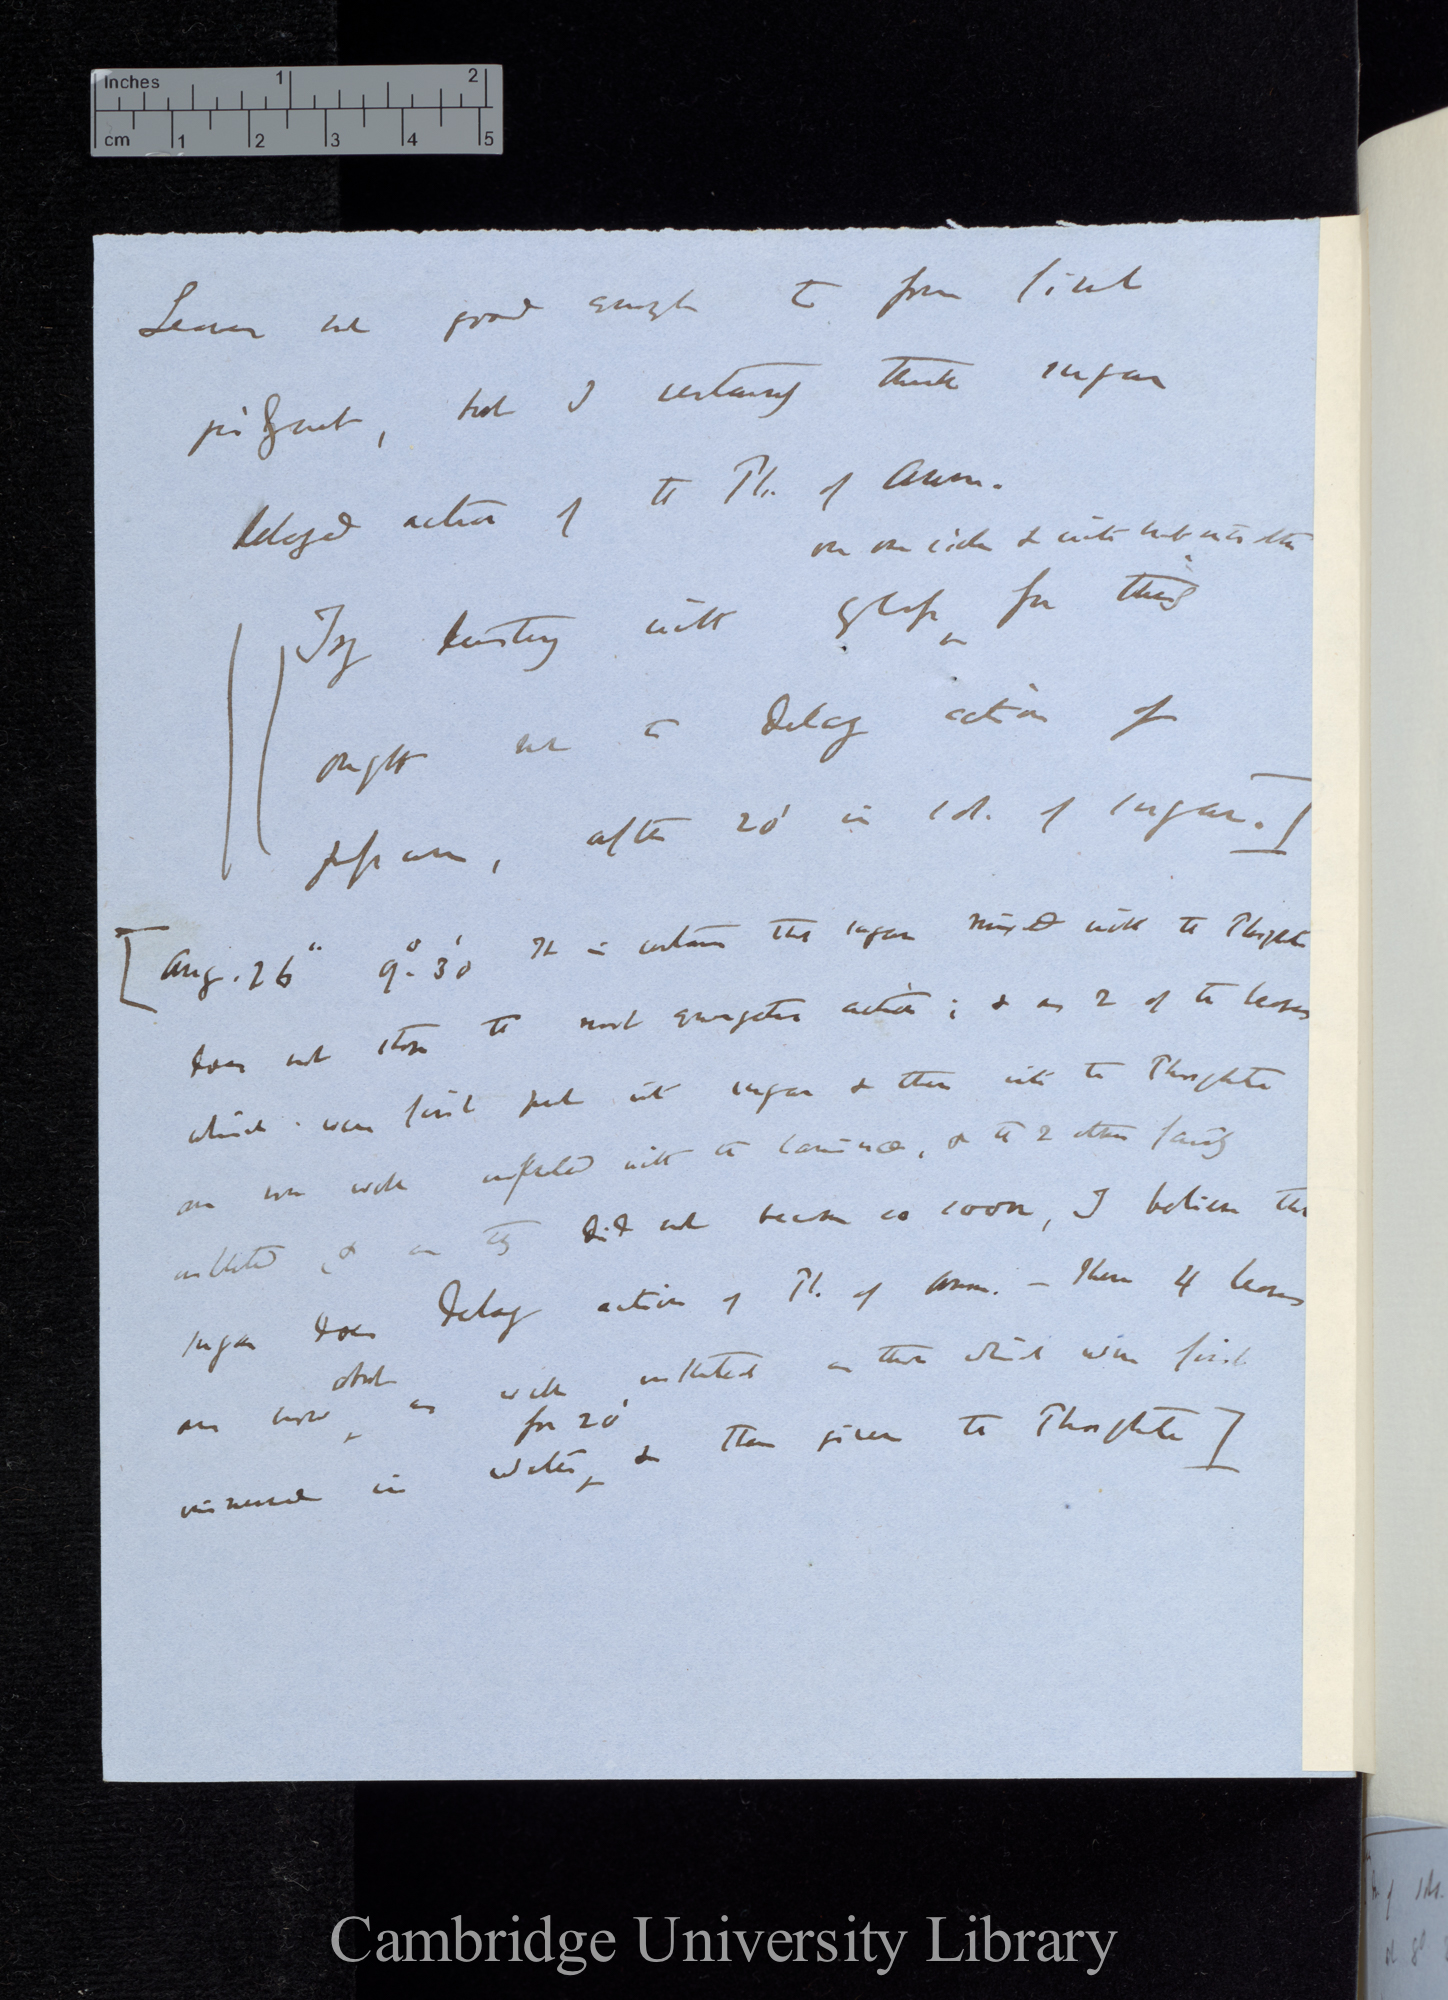 Inches 1 2
cm 1 2 3 4 5
Leaves not good enough to form final
judgment, but I certainly think sugar
delayed action of the Ph. of Amm.
on one side & into
Try dusting with glass for this
ought not to delay action of
after 20' in sol. of sugar.]
[Aug. 26" 9°. 30' It is certain that sugar mixed with the Phosphate
does not stop the most energetic action; & as 2 of the leaves
which were first put into sugar & then into the Phosphate
are now well inflected with the laminæ, & the 2 others fairly
inflected & as they did not become so soon, I believe the
sugar does delay action of Ph. of Amm. — These 4 leaves
are now about as well inflected as those which were first
immersed in water for 20' & then given the Phosphate]
Cambridge University Library